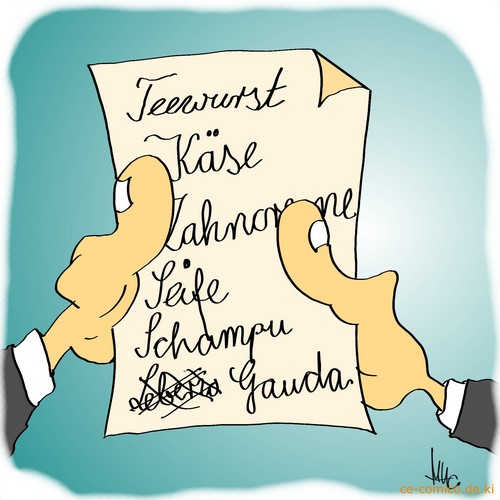 Teewurst
Käse
Zahncreme
Seife
Schampu
Gauda
ce-comico.de.ki